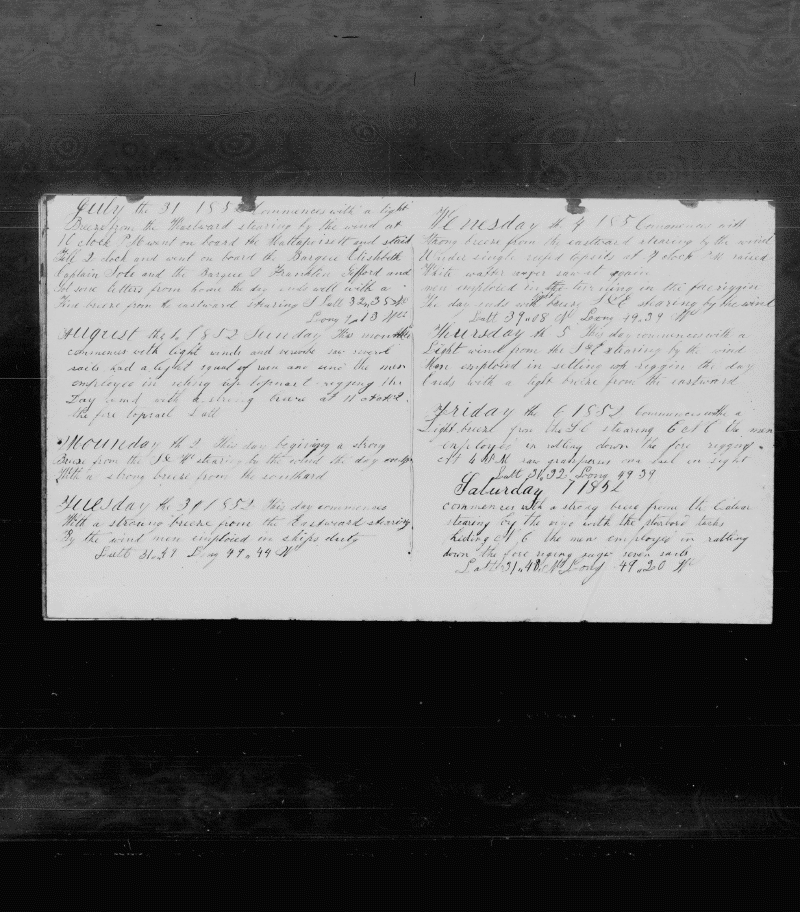 July the 31 1852 Commences with a light
Breeze from the Westward stearing by the wind at
1 O clock P M went on board the Mattapoisett and staid
till 2 clock and went on board the Barque Elisibeth
Captain Cole and the Barque Franklin Gifford and
Got some letters from home the day ends with a
Fine breeze from the eastward stearing S Latt 32=35
Long
August the 1 1852 Sunday This month
commences with light winds and
sails had a light squal of rain and the men
employed in top mast rigging the
Day ends with a strong breeze at 11 oclock
the fore topsail Latt
Mounday th 2 This day begining a strong
Breeze from the S & W stearing by the wind the day ends
With a strong breeze from the southard
Tuesday the 3 1852 This day commences
With a stroung breeze from the Eastward stearing
By the wind men emploied in ships duty
Latt 31.29 Long 49.44 W
Wenesday th 4 185 Commences with
Strong breeze from the eastward stearing by the wind
Under single reefd topsils at 7 oclock P M raised
White watter saw it again
men emploied in the in the fore riggin
The day ends with breeze S & E stearing by the wind
Latt 31.08 N Loong 49.39 W
Thursday th 5 This day commences with a
Light wind from the S & E stearing by the wind
Men emploied in setting up riggin the day
Ends with a light breeze from the eastward
Friday th 6 1852 Commences with a
Light breeze from the S E stearing E & N E the men
employed in ratling down the fore rigging
At 4 P M saw grampuses one sail in sight
Latt 31.32 Long 49 39
Saturday 7 1852
commences with a strong breeze from the
stearing by the wind with the starbord tacks
heding N E the men employed in ratling
down the fore riging seven sails
Latt 31.48 N Long 49.20 W